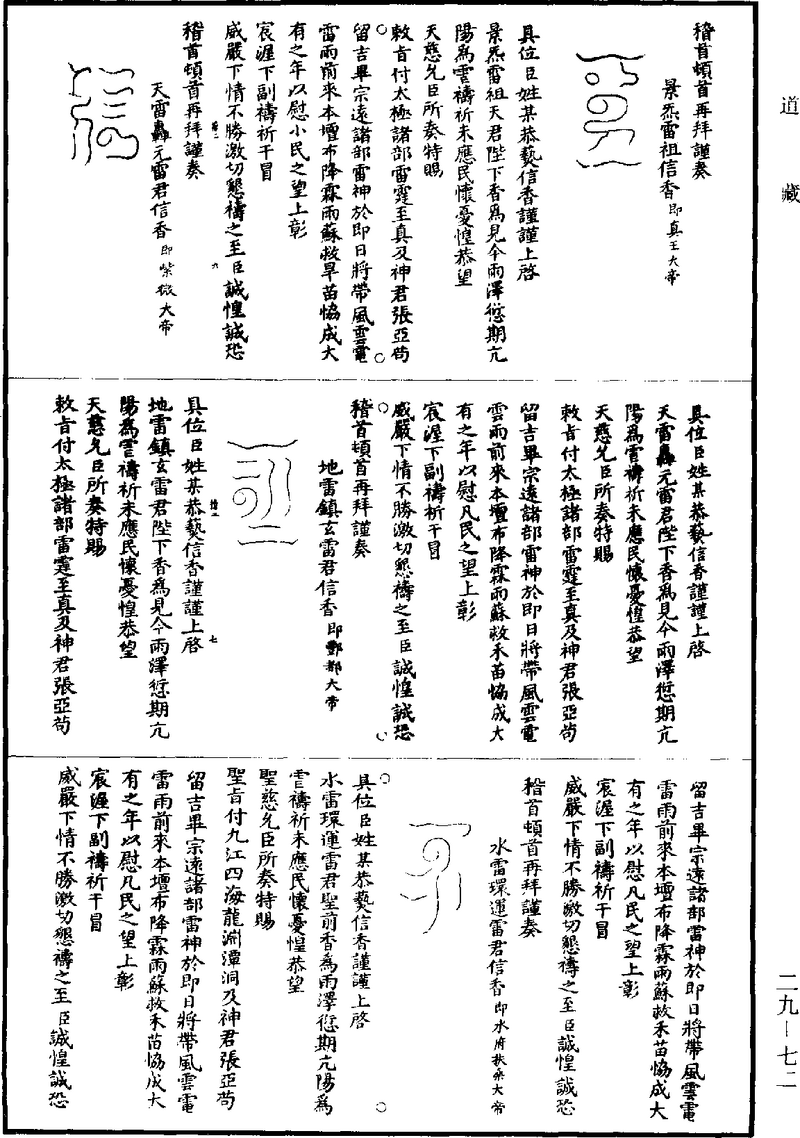 道藏
稽首頓首再拜謹奏
景炁雷祖信香即真王大帝
具位臣姓某恭爇信香謹謹上啓
景炁雷祖天君陛下香爲見今雨澤愆期亢
陽爲害禱祈未應民懷憂惶恭望
天慈允臣所奏特賜
敕旨付太極諸部雷霆至真及神君張亞苟
留吉畢宗遠諸部雷神於即日將帶風雲電
雷雨前來本壇布降霖雨蘇救旱苗恊成大
有之年以慰小民之望上彰
宸渥下副禱祈干冒
威嚴下情不勝激切懇禱之至臣誠惶誠恐
稽首頓首再拜謹奏
天雷轟元雷君信香即紫微大帝
具位臣姓某恭爇信香謹謹上啓
天雷轟元雷君陛下香爲見今雨澤愆期亢
陽爲害禱祈未應民懷憂惶恭望
天慈允臣所奏特賜
敕旨付太極諸部雷霆至真及神君張亞苟
留吉畢宗遠諸部雷神於即日將帶風雲電
雲雨前來本壇布降霖雨蘇救禾苗恊成大
有之年以慰凡民之望上彰
宸渥下副禱祈干冒
威嚴下情不勝激切懇禱之至臣誠惶誠恐
稽首頓首再拜謹奏
地雷鎮玄雷君信香即酆都大帝
具位臣姓某恭爇信香謹謹上啓
地雷鎮玄雷君陛下香爲見今雨澤愆期亢
陽爲害禱祈未應民懷憂惶恭望
天慈允臣所奏特賜
敕旨付太極諸部雷霆至真及神君張亞苟
留吉畢宗遠諸部雷神於即日將帶風雲電
雷雨前來本壇布降霖雨蘇救禾苗恊成大
有之年以慰凡民之望上彰
宸渥下副禱祈干冒
威嚴下情不勝激切懇禱之至臣誠惶誠恐
稽首頓首再拜謹奏
水雷環運雷君信香即水府扶桑大帝
具位臣姓某恭爇信香謹謹上啓
水雷環運雷君聖前香爲雨澤愆期亢陽爲
害禱祈未應民懷憂惶恭望
聖慈允臣所奏特賜
聖旨付九江四海龍淵潭洞及神君張亞苟
留吉畢宗遠諸部雷神於即日將帶風雲電
雷雨前來本壇布降霖雨蘇救禾苗恊成大
有之年以慰凡民之望上彰
宸渥下副禱祈干冒
威嚴下情不勝激切懇禱之至臣誠惶誠恐
二九-七二